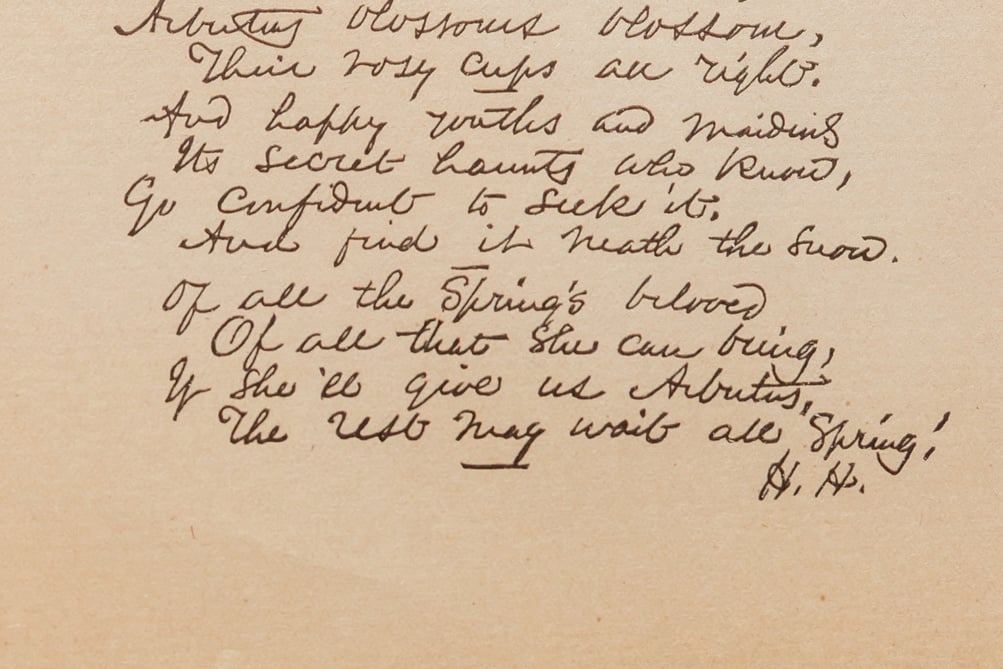 Arbutus blossoms blossom,
Their rosy cups all right.
And happy youths and maidens
Its secret haunts who know,
Go confident to seek it,
And find it neath the snow.
Of all the Spring's beloved
Of all that she can bring,
If she'll give us Arbutus,
The rest may wait all Spring!
H. H.